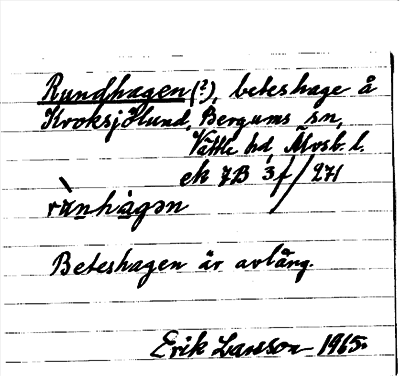 Rundhagen (?), beteshage å
Kroksjölund, Bergums sn,
Vättle hd, Älvsb. l.
ek 7B 3f/271
rùnhàgən
Beteshagen är avlång.
Erik Larsson 1965.